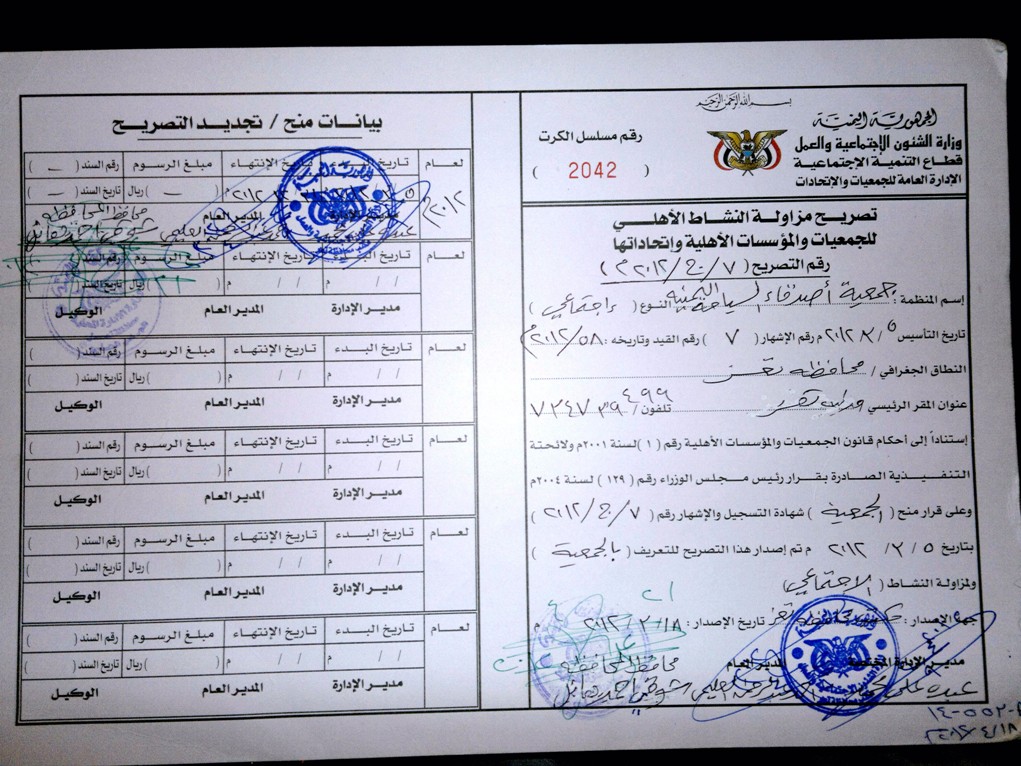 بسم الله الرحمن الرحيم
الجمهورية اليمنية
وزارة الشئون الإجتماعية والعمل
قطاع التنمية الإجتماعية
الإدارة العامة للجمعيات والإتحادات
رقم مسلسل الكرت
( 2042 )
تصريح مزاولة النشاط الأهلي
للجمعيات والمؤسسات الأهلية وإتحاداتها
رقم التصريح ( ٧ / ج / ٢٠١٢ م )
إسم المنظمة : جمعية أصدقاء السياحة اليمنية النوع ( إجتماعي )
تاريخ التأسيس ٥ / ٣ / ٢٠١٢ م رقم الإشهار ( ٧ ) رقم القيد وتاريخه : ٥٨ / ٢٠١٢ م
النطاق الجغرافي / محافظة تعز
عنوان المقر الرئيسي تعز تلفون /
إستناداً إلى أحكام قانون الجمعيات والمؤسسات الأهلية رقم ( ١ ) لسنة ٢٠٠١م ولائحتة
التنفيذية الصادرة بقرار رئيس مجلس الوزراء رقم ( ١٢٩ ) لسنة ٢٠٠٤م
وعلى قرار منح ( الجمعية ) شهادة التسجيل والإشهار رقم ( ٧ / ج / ٢٠١٢ )
بتاريخ ٥ / ٣ / ٢٠١٢ م تم إصدار هذا التصريح للتعريف ( بالجمعية )
ولمزاولة النشاط ( الإجتماعي )
جهة الإصدار : تعز تاريخ الإصدار : ١٨ / ٣ / ٢٠١٢ م
مدير الإدارة المختصة المدير العام محافظ المحافظة
شوقي أحمد هائل
بيانات منح / تجديد التصريح
لعام تاريخ البدء تاريخ الإنتهاء مبلغ الرسوم رقم السند ( )
٢٠١٢م ( ) ريال تاريخ السند ( )
مدير الإدارة المدير العام محافظ المحافظة
شوقي أحمد هائل
لعام تاريخ البدء تاريخ الإنتهاء مبلغ الرسوم
/ / م / / م ( ) ريال تاريخ السند ( )
مدير الإدارة المدير العام الوكيل
لعام تاريخ البدء تاريخ الإنتهاء مبلغ الرسوم رقم السند ( )
/ / م / / م ( ) ريال تاريخ السند ( )
مدير الإدارة المدير العام الوكيل
لعام تاريخ البدء تاريخ الإنتهاء مبلغ الرسوم رقم السند ( )
/ / م / / م ( ) ريال تاريخ السند ( )
مدير الإدارة المدير العام الوكيل
لعام تاريخ البدء تاريخ الإنتهاء مبلغ الرسوم رقم السند ( )
/ / م / / م ( ) ريال تاريخ السند ( )
مدير الإدارة المدير العام الوكيل
لعام تاريخ البدء تاريخ الإنتهاء مبلغ الرسوم رقم السند ( )
/ / م / / م ( ) ريال تاريخ السند ( )
مدير الإدارة المدير العام الوكيل